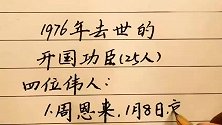 1976年去世的
开国功臣(25人)
四位伟人:
1.周恩来,1月8日京